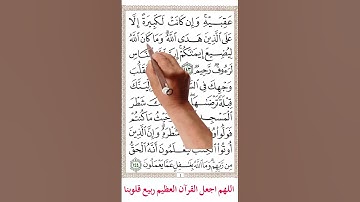 عَقِبَيْهِ وَإِن كَانَتْ لَكَبِيرَةً إِلَّا
عَلَى الَّذِينَ هَدَى اللَّهُ وَمَا كَانَ اللَّهُ
لِيُضِيعَ إِيمَانَكُمْ إِنَّ النَّاسِ
لَرَءُوفٌ رَّحِيمٌ ١٤٣ تَقَلُّبَ
وَجْهِكَ فِي فَلَنُوَلِّيَنَّكَ
قِبْلَةً تَرْضَاهَا شَطْرَ
الْمَسْجِدِ وَحَيْثُ مَا كُنتُمْ
فَوَلُّوا شَطْرَهُ وَإِنَّ الَّذِينَ
أُوتُوا الْكِتَابَ لَيَعْلَمُونَ أَنَّهُ الْحَقُّ
مِن رَّبِّهِمْ وَمَا اللَّهُ بِغَافِلٍ عَمَّا يَعْمَلُونَ ١٤٤
اللهم اجعل القرآن العظيم ربيع قلوبنا